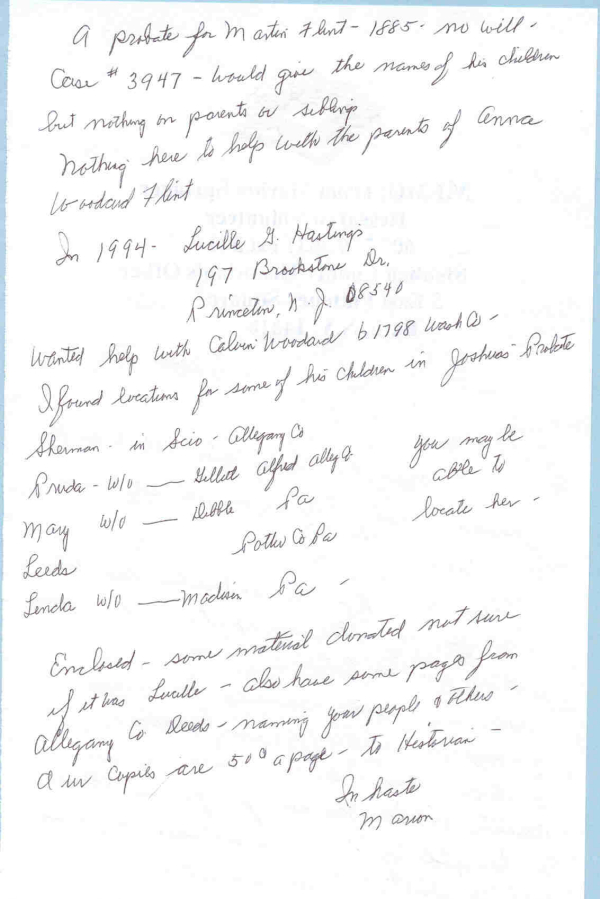 A probate for Martin Flint - 1885 - no will -
Case # 3947 - would give the names of his children
but nothing on parents or sibling
Nothing here to help with the parents of Anna
Woodard Flint
In 1994 - Lucille G. Hastings
197 Brookstone Dr.
Princeton, N J. 08540
Wanted help with Calvin Woodard b 1798 Wash Co -
I found locations for some of his children in Joshuas Probate
Sherman - in Scio - Allegany Co
Pruda - w/o — Gillett Alfred Alleg Co.
you may be
able to
locate her -
Mary w/o — Dibble Pa
Leeds Potter Co Pa
Lenda w/o — Madison Pa -
Enclosed - some material donated not sure
if it was Lucille - also have some pages from
Allegany Co Deeds - naming your people & others -
Our Copies are 50¢ a page - to Historian -
In haste
Marion